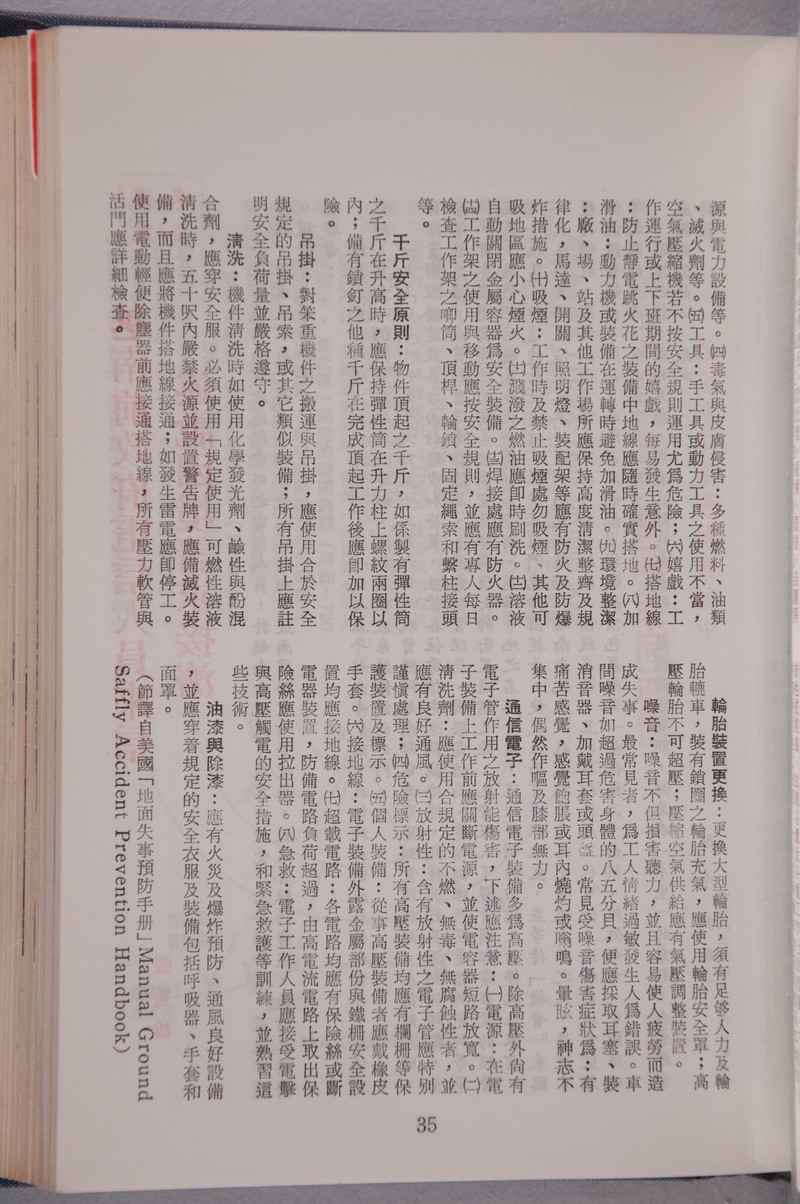 源與電力設備等。㈣毒氣與皮膚侵害：多種燃料、油類
、滅火劑等。㈤工具：手工具或動力工具之使用不當，
空氣壓縮機若不按安全規則運用尤爲危險；㈥嬉戲：工
作運行或上下班期間的嬉戲，每易發生意外。㈦搭地線
：防止靜電跳火花之裝備中地線應隨時確實搭地。㈧加
滑油：動力機或裝備在運轉時避免加滑油。㈨環境整潔
：廠、場、站及其他工作場所應保持高度清潔整齊及規
律化，馬達、開關、照明燈、裝配架等應有防火及防爆
炸措施。㈩吸煙：工作時及禁止吸煙處勿吸煙、其他可
吸地區應小心煙火。㈩㈠濺潑之燃油應卽時刷洗。㈩㈡溶液
自動關閉金屬容器爲安全裝備。㈩㈢焊接處應有防火器。
㈩㈣工作架之使用與移動應按安全規則，並應有專人每日
檢查工作架之唧筒、頂桿、輪鎖、固定繩索和繫柱接頭
等。
千斤安全原則：物件頂起之千斤，如係製有彈性筒
之千斤在升高時，應保持彈性筒在升力柱上螺紋兩圈以
內；備有鎖釘之他種千斤在完成頂起工作後應卽加以保
險。
吊掛：對笨重機件之搬運與吊掛，應使用合於安全
規定的吊掛、吊索，或其它類似裝備；所有吊掛上應註
明安全負荷量並嚴格遵守。
清洗：機件清洗時如使用化學發光劑、鹼性與酚混
合劑，應穿安全服。必須使用「規定使用」可燃性溶液
清洗時，五十呎內嚴禁火源並設置警告牌，應備滅火裝
備，而且應將機件搭地線接通；如發生雷電應卽停工。
使用電動輕便除塵器前應接通搭地線，所有壓力軟管與
活門應詳細檢查。
輪胎裝置更換：更換大型輪胎，須有足够人力及輪
胎轆車，裝有鎖圈之輪胎充氣，應使用輪胎安全罩；高
壓輪胎不可超壓；壓縮空氣供給應有氣壓調整裝置。
噪音：噪音不但損害聽力，並且容易使人疲勞而造
成失事。最常見者，爲工人情緒過敏發生人爲錯誤。車
間噪音如超過危害身體的八五分貝，便應採取耳塞、裝
消音器、加戴耳套或頭盔。常見受噪音傷害症狀爲：有
痛苦感覺，感覺飽脹或耳內燒灼或嗡鳴。暈眩，神志不
集中，偶然作嘔及膝部無力。
通信電子：通信電子裝備多爲高壓。除高壓外尙有
電子管作用之放射能傷害，下述應注意：㈠電源：在電
子裝備上工作前應關斷電源，並使電容器短路放寬。㈡
清洗劑：應使用合規定的不燃、無毒、無腐蝕性者，並
應有良好通風。㈢放射性：含有放射性之電子管應特別
謹愼處理；㈣危險標示：所有高壓裝備均應有欄柵等保
護裝置及標示。㈤個人裝備：從事高壓裝備者應戴橡皮
手套。㈥接地線：電子裝備外露金屬部份與鐵柵安全設
置均應接地線。㈦超載電路：各電路均應有保險絲或斷
電器裝置，防備電路負荷超過，由高電流電路上取出保
險絲應使用拉出器。㈧急救：電子工作人員應接受電擊
與高壓觸電的安全措施，和緊急救護等訓練，並熟習這
些技術。
油漆與除漆：應有火災及爆炸預防、通風良好設備
，並應穿着規定的安全衣服及裝備包括呼吸器、手套和
面罩。
（節譯自美國「地面失事預防手册」Manual Ground
Saffly Accident Prevention Handbook）
35